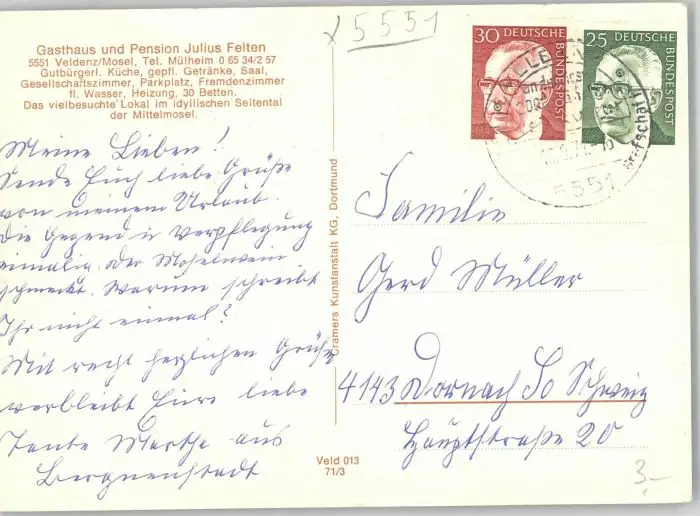 Gasthaus und Pension Julius Felten
5551 Veldenz/Mosel, Tel. Mülheim 0 65 34/2 57
Gutbürgerl. Küche, gepfl. Getränke, Saal,
Gesellschaftszimmer, Parkplatz, Fremdenzimmer
fl. Wasser, Heizung, 30 Betten.
Das vielbesuchte Lokal im idyllischen Seitental
der Mittelmosel.
Meine Lieben!
Sende Euch liebe Grüße
von meinem Urlaub.
Die Gegend u Verpflegung
einmalig. Der Moselwein
schmeckt. Warum schreibt
Ihr nicht einmal?
Mit recht herzlichen Grüße
verbleibt Eure liebe
Tante Martha aus
Cramers Kunstanstalt KG, Dortmund
Veld 013
71/3
5551
30 DEUTSCHE
BUNDESPOST
25 DEUTSCHE
BUNDESPOST
5551
Familie
Gerd Müller
4143 Dornach So Schweiz
Hauptstraße 20
3,-